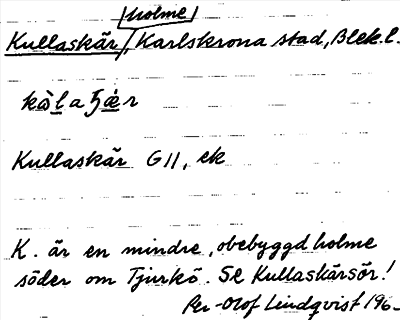 holme
Kullaskär, Karlskrona stad, Blek. l.
kòlaʒær
Kullaskär G11, ek
K. är en mindre, obebyggd holme
söder om Tjurkö. Se Kullaskärsör!
Per-Olof Lindqvist 196